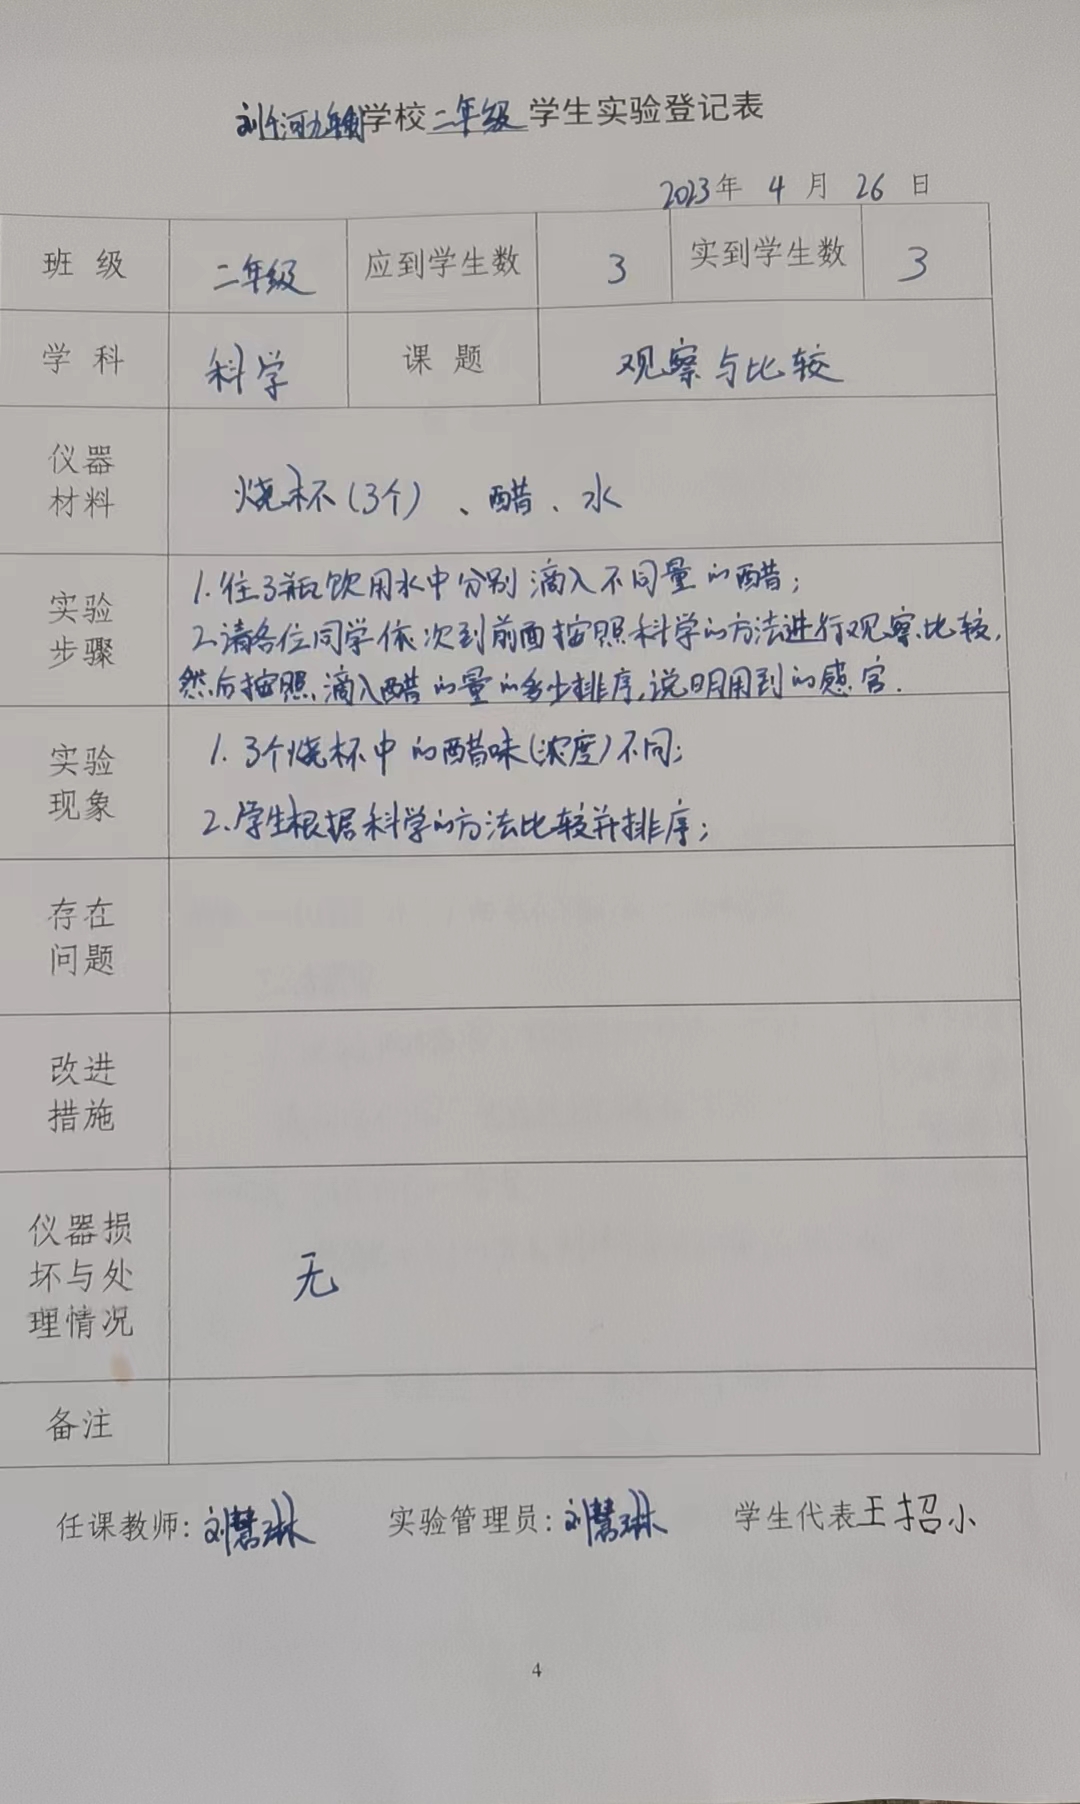 刘河九年制学校二年级学生实验登记表
2023年 4 月 26 日
班 级 二年级 应到学生数 3 实到学生数 3
学 科 科学 课 题 观察与比较
仪器
材料
烧杯(3个)、醋、水
实验
步骤
1.往3瓶饮用水中分别滴入不同量的醋;
2.请各位同学依次到前面按照科学的方法进行观察、比较,
然后按照滴入醋的量的多少排序,说明用到的感官.
实验
现象
1.3个烧杯中的醋味(浓度)不同;
2.学生根据科学的方法比较并排序;
存在
问题
改进
措施
仪器损
坏与处
理情况
无
备注
任课教师:刘慧琳 实验管理员:刘慧琳 学生代表王招小
4